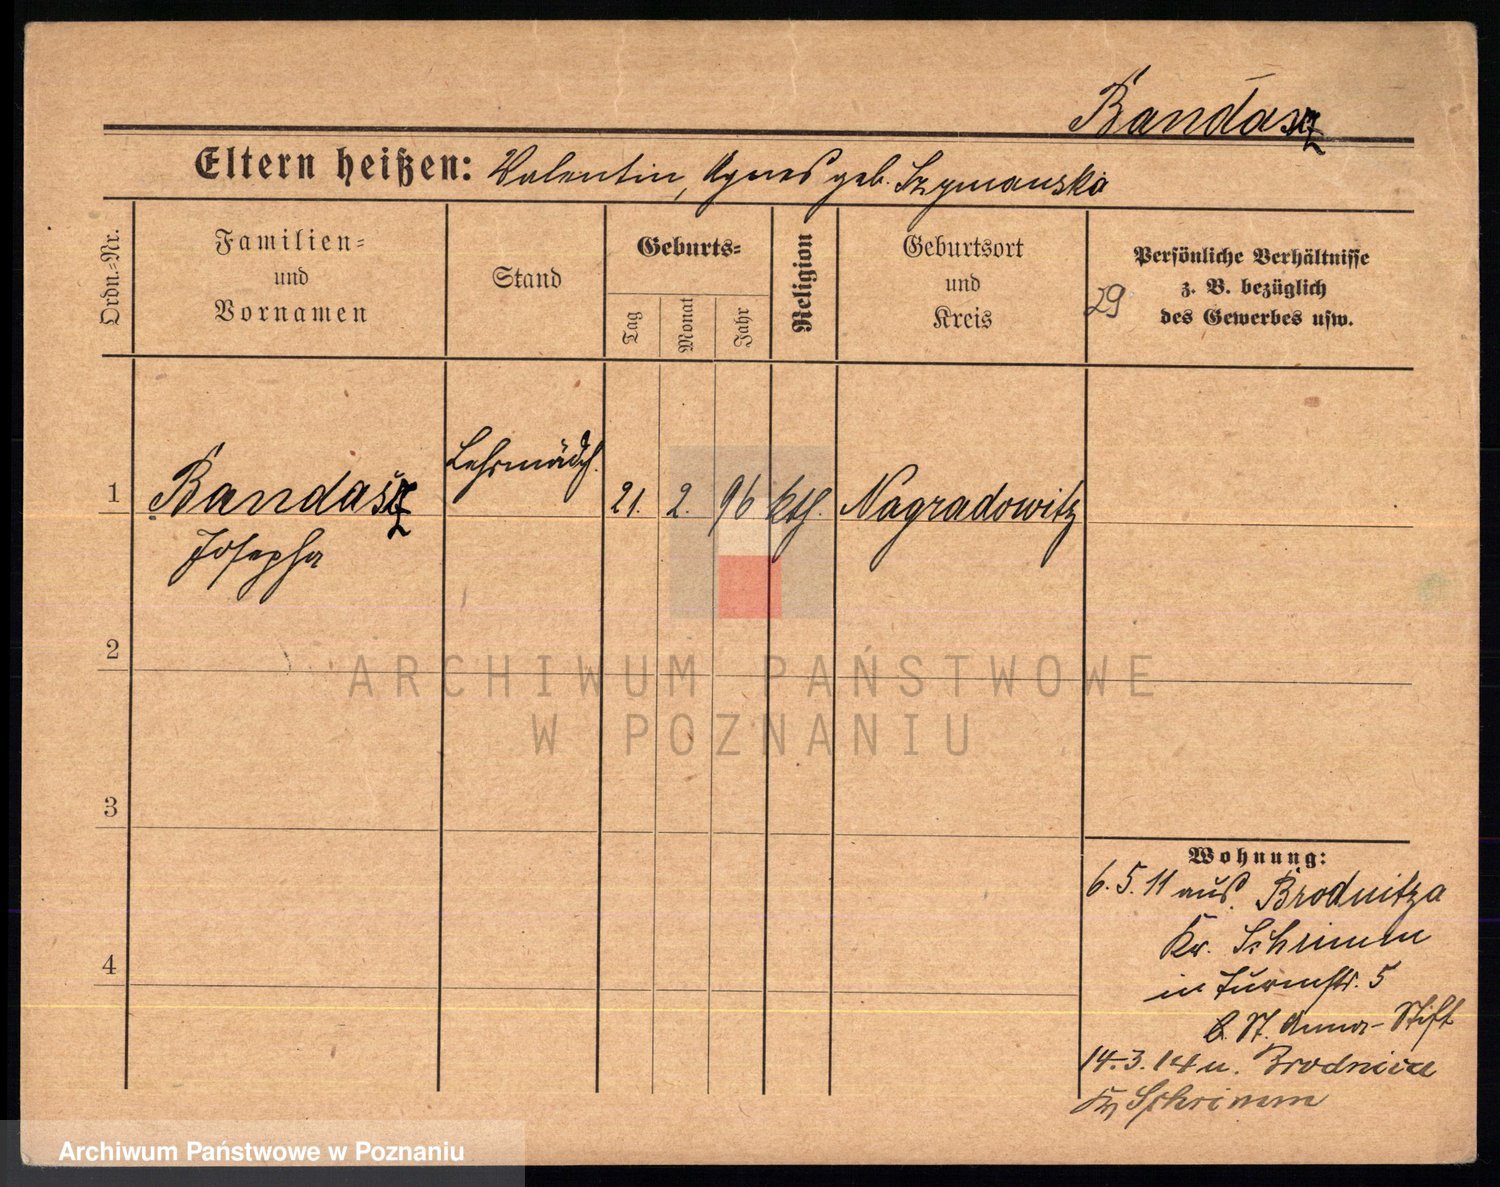 Bandasz
Eltern heißen: Valentin, Agnes geb. Szymanska
Ordn.=Nr.
Familien=
und
Vornamen
Stand
Geburts=
Tag
Monat
Jahr
Religion
Geburtsort
und
Kreis
29
Persönliche Verhältnisse
z. B. bezüglich
des Gewerbes usw.
1
Bandasz
Josepha
Lehrmädch.
21.
2.
96
kth.
Nagradowitz
2
3
4
Wohnung:
6. 5. 11 aus Brodnitza
Kr. Schrimm
in Turmstr. 5
b. St. Anna-Stift
14.3.14 n. Brodnica
Kr Schrimm
ARCHIWUM PAŃSTWOWE
W POZNANIU
Archiwum Państwowe w Poznaniu